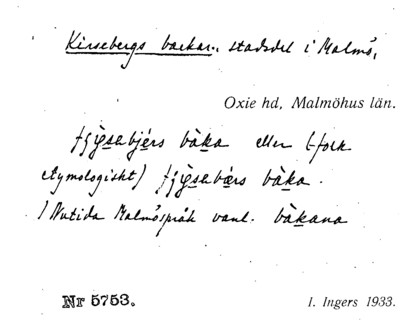 Kirsebergs backar, stadsdel i Malmö,
Oxie hd, Malmöhus län.
bàka eller (folk
etymologiskt) bàka.
I Nutida Malmöspråk vanl. bàkana
Nr 5753.
I. Ingers 1933.